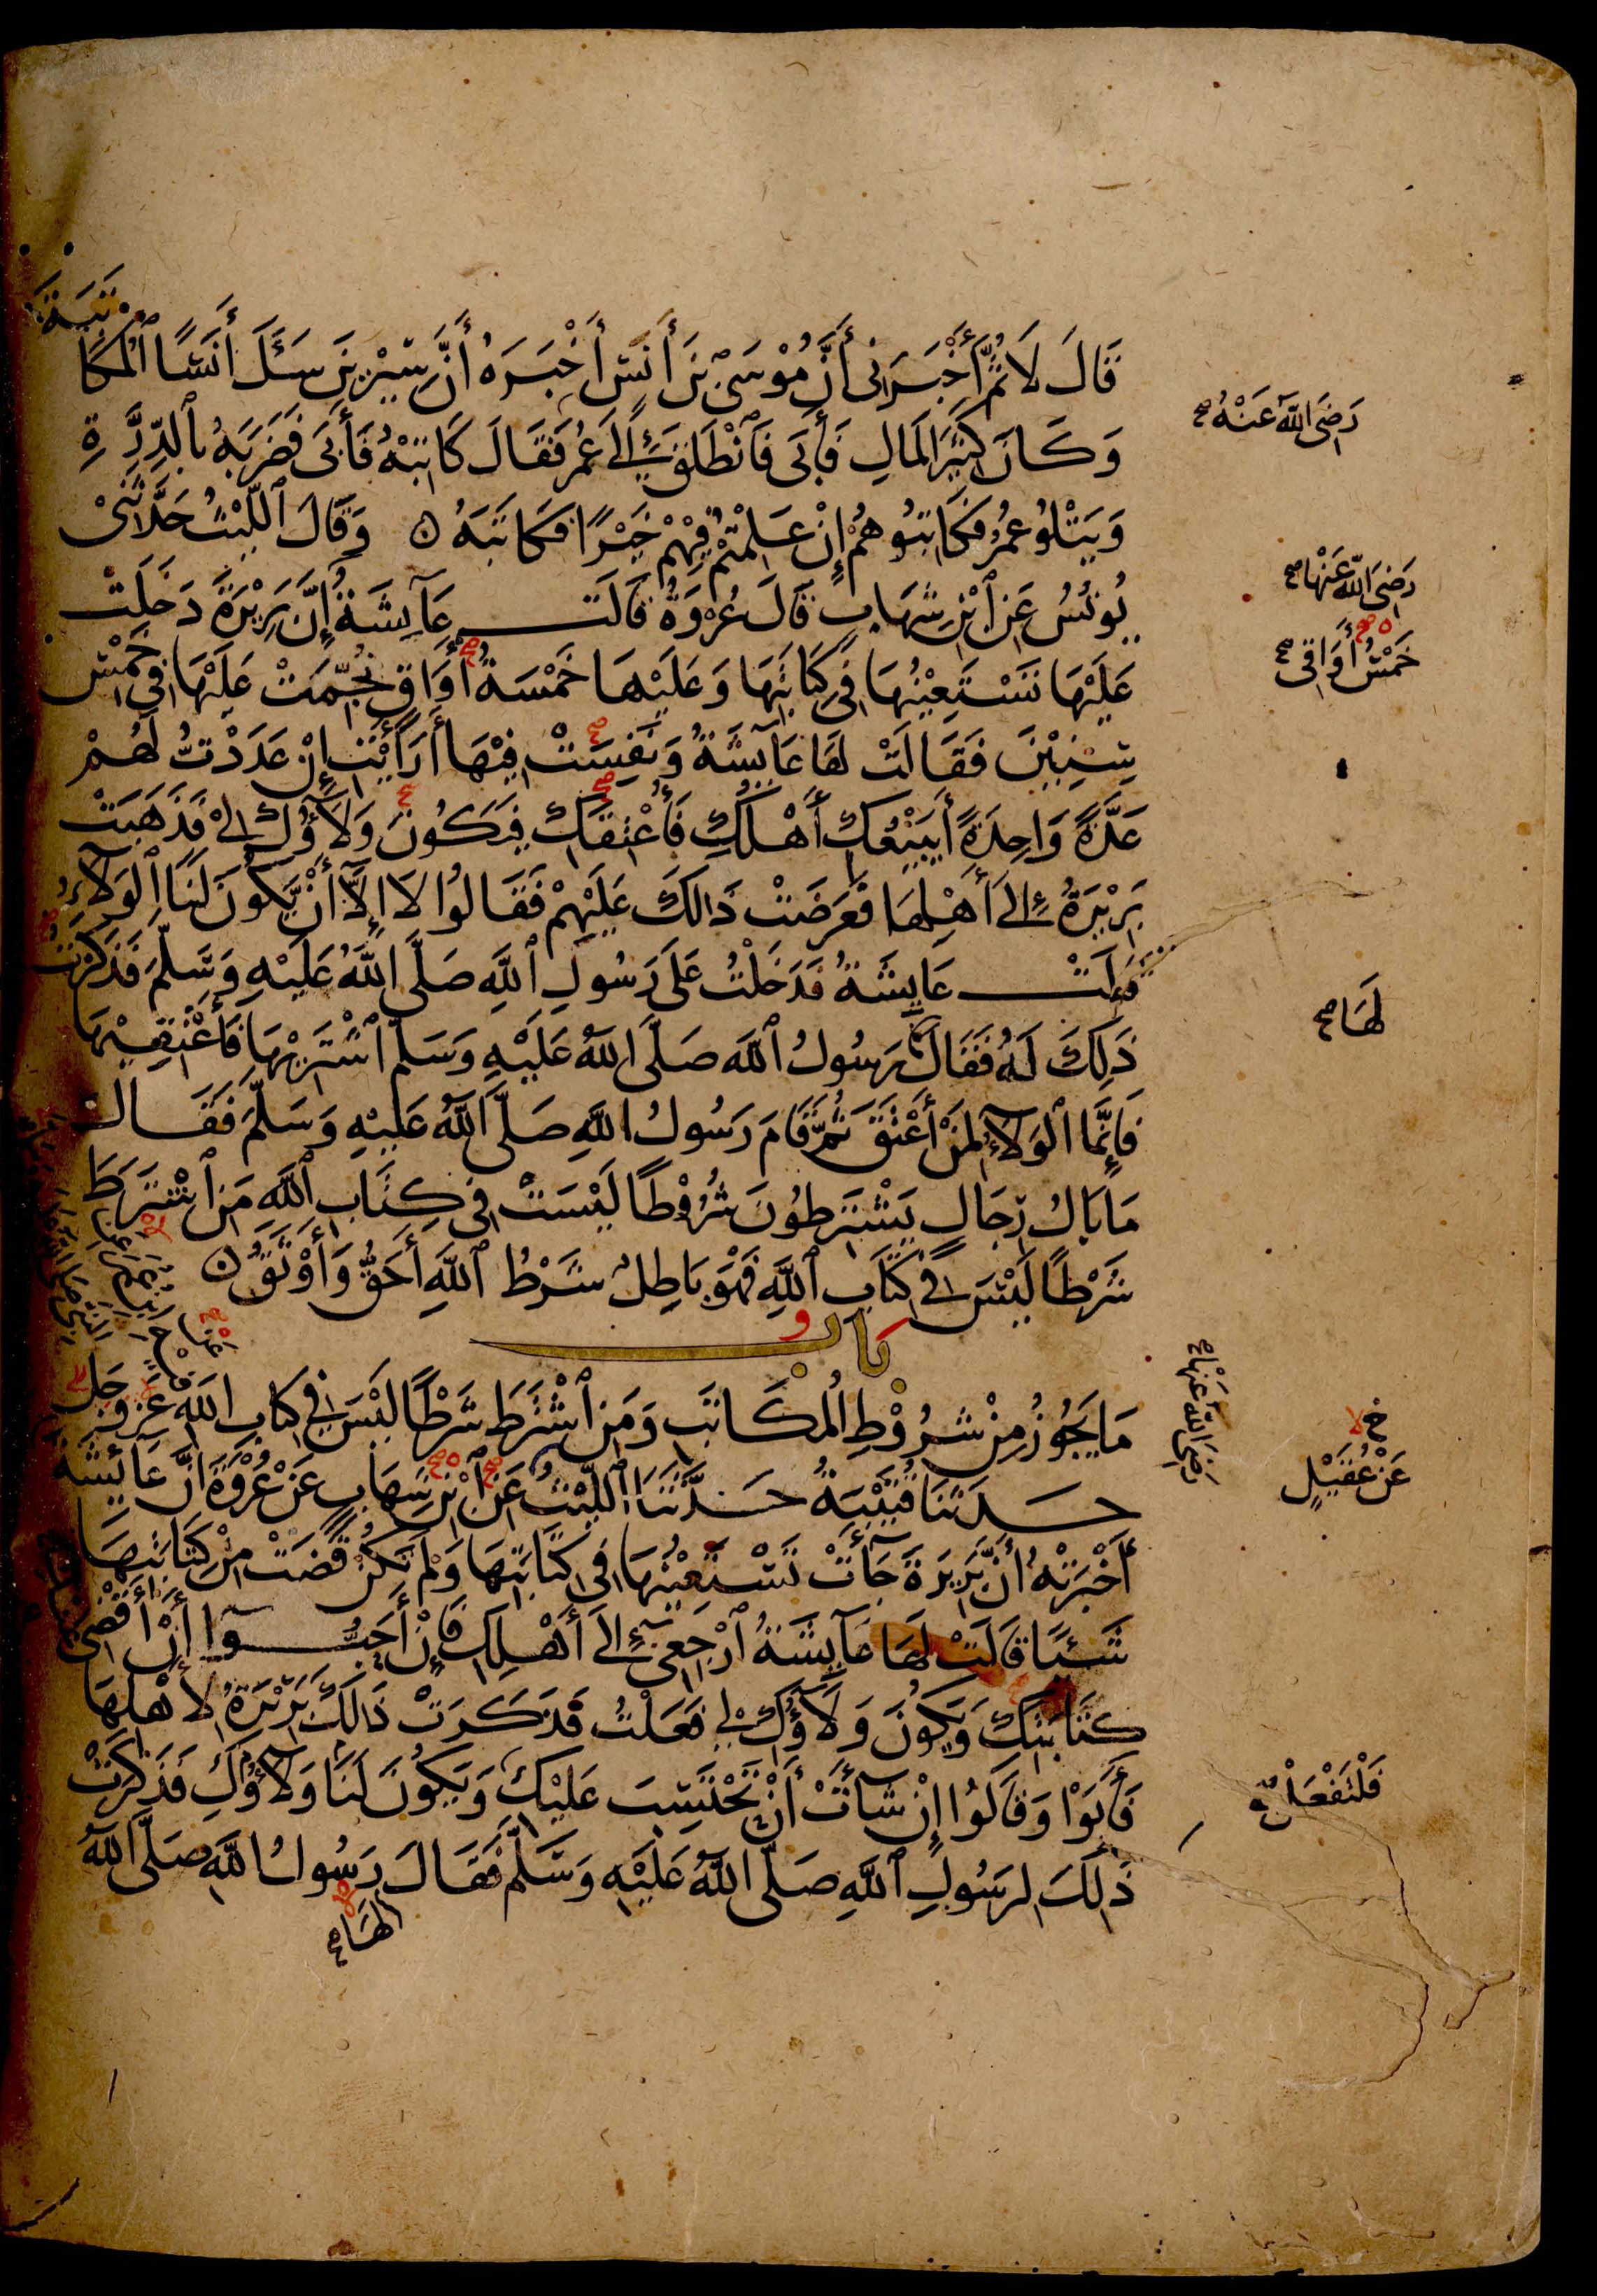 قَالَ لَا ثُمَّ أَخْبَرَنِى أَنَّ مُوْسَى بْنَ أَنَسٍ أَخْبَرَهُ أَنَّ سِيْرِيْنَ سَئَلَ أَنَسًا ٱلْمُكَا
تَبَةَ
وَكَانَ كَثِيْرَ الْمَالِ فَأَبَى فَٱنْطَلَقَ إِلَى عُمَرَ فَقَالَ كَاتِبْهُ فَأَبَى فَضَرَبَهُ بِٱلدِّرَّةِ
وَيَتْلُوُ عُمَرُ فَكَاتِبُوْهُمْ إِنْ عَلِمْتُمْ فِيْهِمْ خَيْرًا فَكَاتَبَهُ ن وَقَالَ ٱللَّيْثُ حَدَّثَنِىْ
يُوْنُسُ عَنِ ٱبْنِ شِهَابٍ قَالَ عُرْوَةُ قَالَتْ عَآيِشَةُ إِنَّ بَرِيْرَةَ دَخَلَتْ
عَلَيْهَا تَسْتَعِيْنُهَا فِى كِتَابَتِهَا وَعَلَيْهَا خَمْسَةُ أَوَاقٍ نُجِّمَتْ عَلَيْهَا فِى خَمْسِ
سِنِيْنَ فَقَالَتْ لَهَا عَايِشَةُ وَنَفِسَتْ فِيْهَا أَرَأَيْتِ إِنْ عَدَدْتُ لَهُمْ
عَدَّةً وَاحِدَةً أَيَبِيْعُكِ أَهْلُكِ فَأُعْتِقَكِ فَيَكُونَ وَلَآؤُكِ لِىْ فَذَهَبَتْ
بَرِيْرَةُ إِلَى أَهْلِهَا فَعَرَضَتْ ذَالِكَ عَلَيْهِمْ فَقَالُوا لَا إِلَّا أَنْ يَّكُونَ لَنَا ٱلْوَلَآءُ
قَالَتْ عَايِشَةُ فَدَخَلْتُ عَلَى رَسُولِ ٱللَّهِ صَلَّى اللَّهُ عَلَيْهِ وَسَلَّمَ فَذَكَرْتُ
ذَلِكَ لَهُ فَقَالَ رَسُولُ ٱللَّهِ صَلَّى اللَّهُ عَلَيْهِ وَسَلَّمَ ٱشْتَرِيْهَا فَأَعْتِقِيْهَا
فَإِنَّمَا ٱلْوَلَآءُ لِمَنْ أَعْتَقَ ثُمَّ قَامَ رَسُولُ اللَّهِ صَلَّى اللَّهُ عَلَيْهِ وَسَلَّمَ فَقَالَ
مَا بَالُ رِجَالٍ يَشْتَرِطُونَ شُرُوْطًا لَيْسَتْ فِى كِتَابِ ٱللَّهِ مَنِ ٱشْتَرَطَ
شَرْطًا لَيْسَ فِى كِتَابِ ٱللَّهِ فَهْوَ بَاطِلٌ شَرْطُ ٱللَّهِ أَحَقُّ وَأَوْثَقُ ن
بَابُ
مَا يَجُوْزُ مِنْ شُرُوْطِ الْمُكَاتَبِ وَمَنِ ٱشْتَرَطَ شَرْطًا لَيْسَ فِى كِتَابِ اللَّهِ عَزَّ وَجَلَّ
حَدَّثَنَا قُتَيْبَةُ حَدَّثَنَا ٱللَّيْثُ عَنِ ٱبْنِ شِهَابٍ عَنْ عُرْوَةَ أَنَّ عَآئِشَةَ
أَخْبَرَتْهُ أَنَّ بَرِيْرَةَ جَآءَتْ تَسْتَعِيْنُهَا فِى كِتَابَتِهَا وَلَمْ تَكُنْ قَضَتْ مِنْ كِتَابَتِهَا
شَيْئًا قَالَتْ لَهَا عَآيِشَةُ ٱرْجِعِىْ إِلَى أَهْلِكِ فَإِنْ أَحَبُّوا أَنْ أَقْضِىَ
كِتَابَتَكِ وَيَكُونَ وَلَآؤُكِ لِى فَعَلْتُ فَذَكَرَتْ ذَالِكَ بَرِيْرَةُ لِأَهْلِهَا
فَأَبَوْا وَقَالُوُا إِنْ شَآءَتْ أَنْ تَحْتَسِبَ عَلَيْكِ وَيَكُونَ لَنَا وَلَآؤُكِ فَذَكَرَتْ
ذَلِكَ لِرَسُولِ ٱللَّهِ صَلَّى اللَّهُ عَلَيْهِ وَسَلَّمَ فَقَالَ رَسُولُ اللَّهِ صَلَّى اللَّهُ
لَهَا صح
رَضِىَ اللَّهُ عَنْهُ صح
رَضِىَ اللَّهُ عَنْهَا صح
خَمْسُ أَوَاقِى صح
لَهَا صح
رَضِىَ اللَّهُ عَنْهَا صح
خ لا
عَنْ عُقَيْلٍ
فَلْتَفْعَلْ